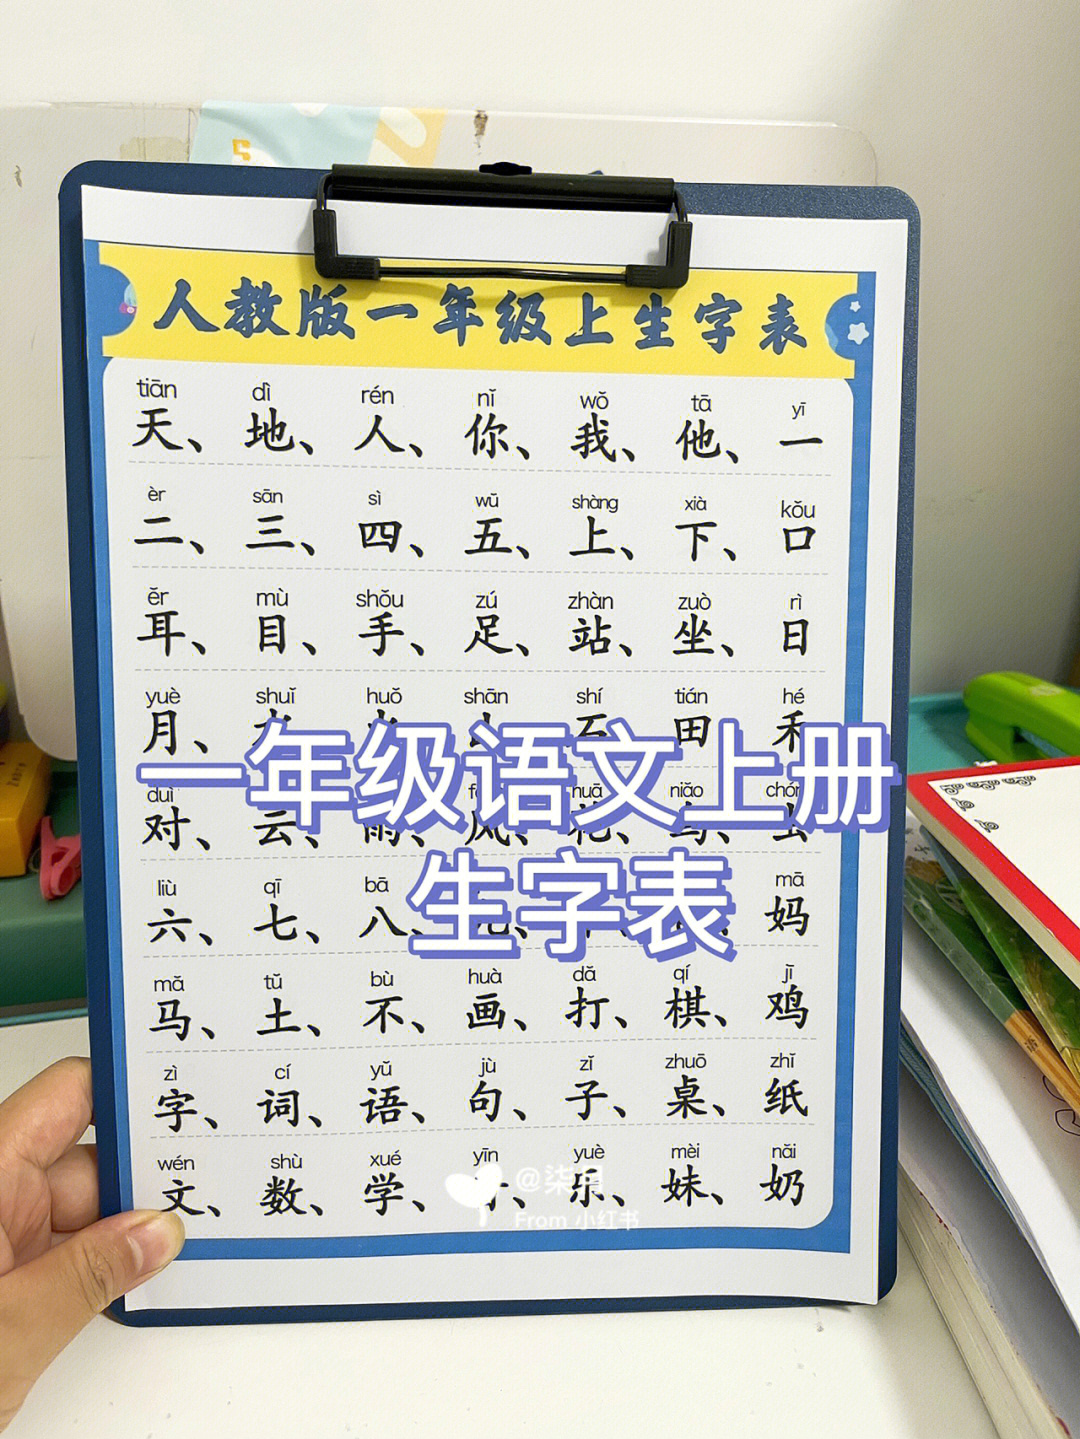 人教版一年级上生字表
tiān dì rén nǐ wǒ tā yī
天、地、人、你、我、他、一
èr sān sì wǔ shàng xià kǒu
二、三、四、五、上、下、口
ěr mù shǒu zú zhàn zuò rì
耳、目、手、足、站、坐、日
yuè shuǐ huǒ shān shí tián hé
月、水、火、山、石、田、禾
一年级语文上册
duì huā niǎo chóng
对、云、雨、风、花、鸟、虫
liù qī bā mā
六、七、八、九、妈
生字表
mǎ tǔ bù huà dǎ qí jī
马、土、不、画、打、棋、鸡
zì cí yǔ jù zǐ zhuō zhǐ
字、词、语、句、子、桌、纸
wén shù xué yīn yuè mèi nǎi
文、数、学、音、乐、妹、奶
@柒月
From 小红书